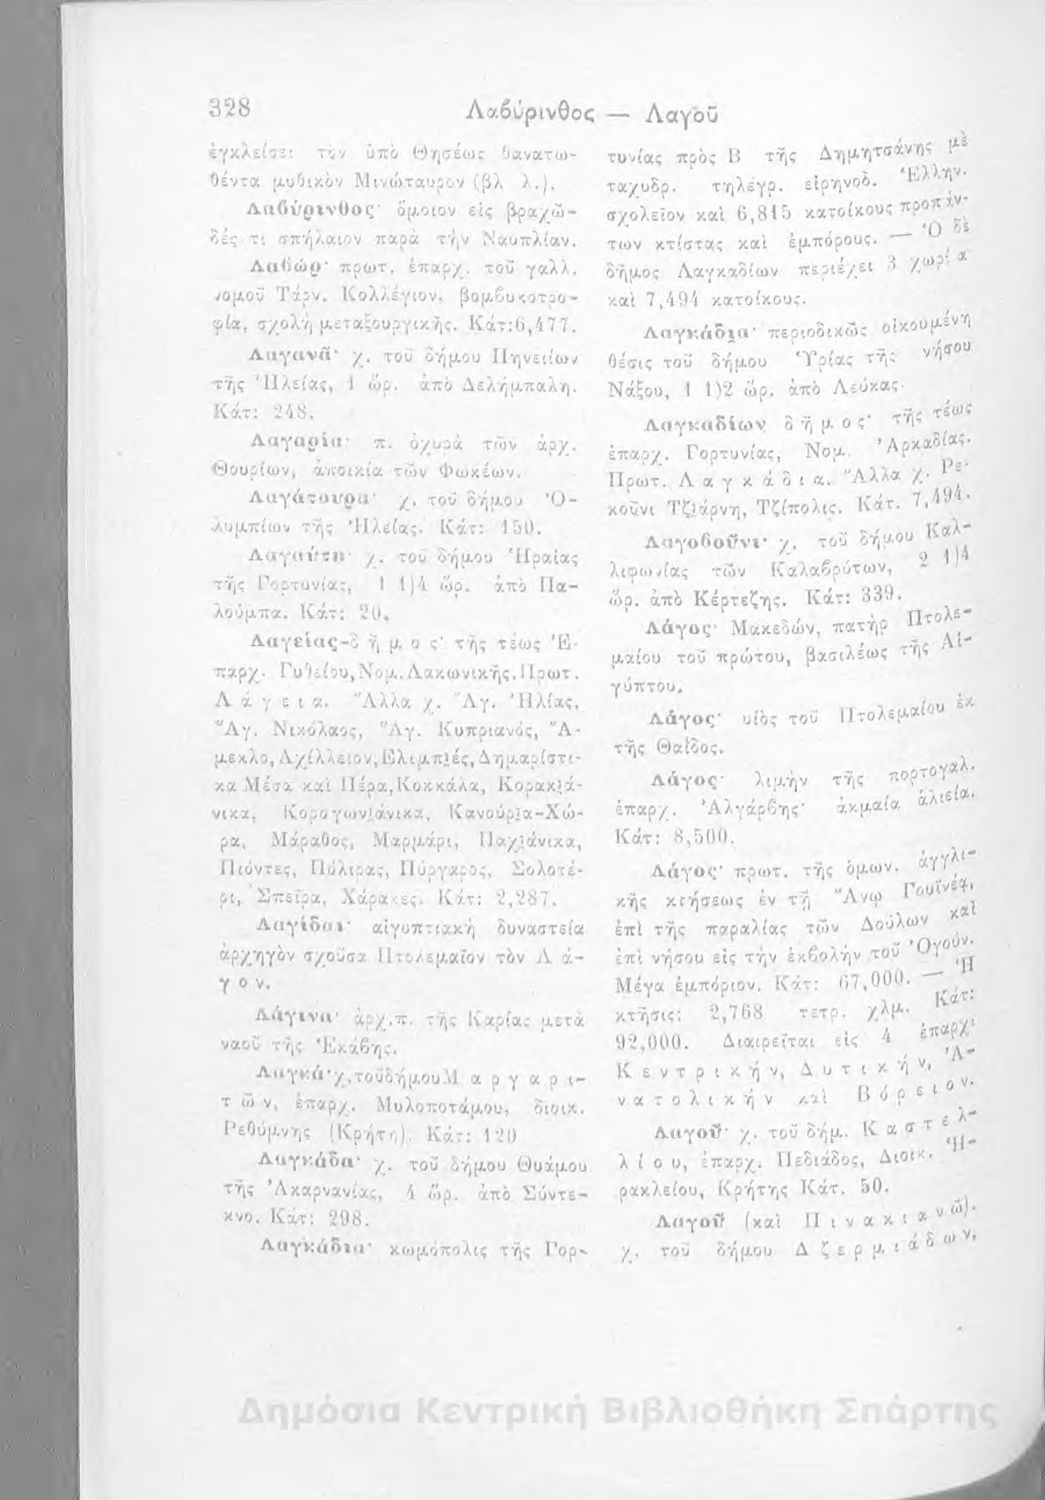 328
Λαβύρινθος — Λαγοῦ
ἐγκλείσει τὸν ὑπὸ Θησέως θανατω-
θέντα μυθικὸν Μινώταυρον (βλ λ.).
Λαβύρινθος· ὅμοιον εἰς βραχῶ-
δές τι σπήλαιον παρὰ τὴν Ναυπλίαν.
Λαβώρ· πρωτ. ἐπαρχ. τοῦ γαλλ.
νομοῦ Τάρν. Κολλέγιον, βομβυκοτρο-
φία, σχολὴ μεταξουργικῆς. Κάτ:6,477.
Λαγανᾶ· χ. τοῦ δήμου Πηνείων
τῆς Ἠλείας, 1 ὥρ. ἀπὸ Δελήμπαλη.
Κάτ: 248.
Λαγαρία· π. ὀχυρὰ τῶν ἀρχ.
Θουρίων, ἀποικία τῶν Φωκέων.
Λαγάτουρα· χ. τοῦ δήμου Ὀ-
λυμπίων τῆς Ἠλείας. Κάτ: 150.
χ. τοῦ δήμου Ἡραίας
τῆς Γορτυνίας, 1 1)4 ὥρ. ἀπὸ Πα-
λούμπα. Κάτ: 20.
Λαγείας-δ ή μ ο ς· τῆς τέως Ἐ-
παρχ. Γυθείου,Νομ.Λακωνικῆς.Πρωτ.
Λ ά γ ε ι α. Ἄλλα χ. Ἅγ. Ἠλίας,
Ἅγ. Νικόλαος, Ἅγ. Κυπριανός, Ἄ-
μεκλο,Ἀχίλλειον,Ἐλιμπῃές,Δημαρίστι-
κα Μέσα καὶ Πέρα,Κοκκάλα, Κορακιά-
νικα, Κορογωνιάνικα, Κανούρια-Χώ-
ρα, Μάραθος, Μαρμάρι, Παχιάνικα,
Πιόντες, Πόλιρας, Πύργαρος, Σολοτέ-
ρι, Σπεῖρα, Χάρακες. Κάτ: 2,287.
Λαγίδαι· αἰγυπτιακὴ δυναστεία
ἀρχηγὸν σχοῦσα Πτολεμαῖον τὸν Λ ά-
γ ο ν.
Λάγινα· ἀρχ.π. τῆς Καρίας μετὰ
ναοῦ τῆς Ἑκάβης.
Λαγκά·χ.τοῦδήμουΜ α ρ γ α ρ ι-
τ ῶ ν, ἐπαρχ. Μυλοποτάμου, διοικ.
Ρεθύμνης (Κρήτη). Κάτ: 120
Λαγκάδα· χ. τοῦ δήμου Θυάμου
τῆς Ἀκαρνανίας, 4 ὥρ. ἀπὸ Σύντε-
κνο. Κάτ: 298.
Λαγκάδια· κωμόπολις τῆς Γορ-
τυνίας πρὸς Β τῆς Δημητσάνης μὲ
ταχυδρ. τηλέγρ. εἰρηνοδ. Ἑλλην.
σχολεῖον καὶ 6,815 κατοίκους προπάν-
των κτίστας καὶ ἐμπόρους. — Ὁ δὲ
δῆμος Λαγκαδίων περιέχει 3 χωρία
καὶ 7,494 κατοίκους.
Λαγκάδια· περιοδικῶς οἰκουμένη
θέσις τοῦ δήμου Ὑρίας τῆς νήσου
Νάξου, 1 1)2 ὥρ. ἀπὸ Λεύκας.
Λαγκαδίων δ ῆ μ ο ς· τῆς τέως
ἐπαρχ. Γορτυνίας, Νομ. Ἀρκαδίας.
Πρωτ. Λ α γ κ ά δ ι α. Ἄλλα χ. Ρε-
κοῦνι Τζιάρνη, Τζίπολις. Κάτ. 7,494.
Λαγοβοῦνι· χ. τοῦ δήμου Καλ-
λιφωνίας τῶν Καλαβρύτων, 2 1)4
ὥρ. ἀπὸ Κέρτεζης. Κάτ: 339.
Λάγος· Μακεδών, πατὴρ Πτολε-
μαίου τοῦ πρώτου, βασιλέως τῆς Αἰ-
γύπτου.
Λάγος· υἱὸς τοῦ Πτολεμαίου ἐκ
τῆς Θαΐδος.
Λάγος· λιμὴν τῆς πορτογαλ.
ἐπαρχ. Ἀλγάρβης· ἀκμαία ἁλιεία.
Κάτ: 8,500.
Λάγος· πρωτ. τῆς ὁμων. ἀγγλι-
κῆς κτήσεως ἐν τῇ Ἄνω Γουϊνέᾳ,
ἐπὶ τῆς παραλίας τῶν Δούλων καὶ
ἐπὶ νήσου εἰς τὴν ἐκβολὴν τοῦ Ὀγούν.
Μέγα ἐμπόριον. Κάτ: 67,000. — Ἡ
κτῆσις: 2,768 τετρ. χλμ. Κάτ:
92,000. Διαιρεῖται εἰς 4 ἐπαρχ·
Κ ε ν τ ρ ι κ ή ν, Δ υ τ ι κ ή ν, Ἀ-
ν α τ ο λ ι κ ή ν καὶ Β ό ρ ε ι ο ν.
Λαγοῦ· χ. τοῦ δήμ. Κ α σ τ ε λ-
λ ί ο υ, ἐπαρχ. Πεδιάδος, Διοικ. Ἡ-
ρακλείου, Κρήτης Κάτ. 50.
Λαγοῦ (καὶ Π ι ν α κ ι α ν ῶ).
χ. τοῦ δήμου Δ ζ ε ρ μ ι ά δ ω ν,
Δημόσια Κεντρική Βιβλιοθήκη Σπάρτης